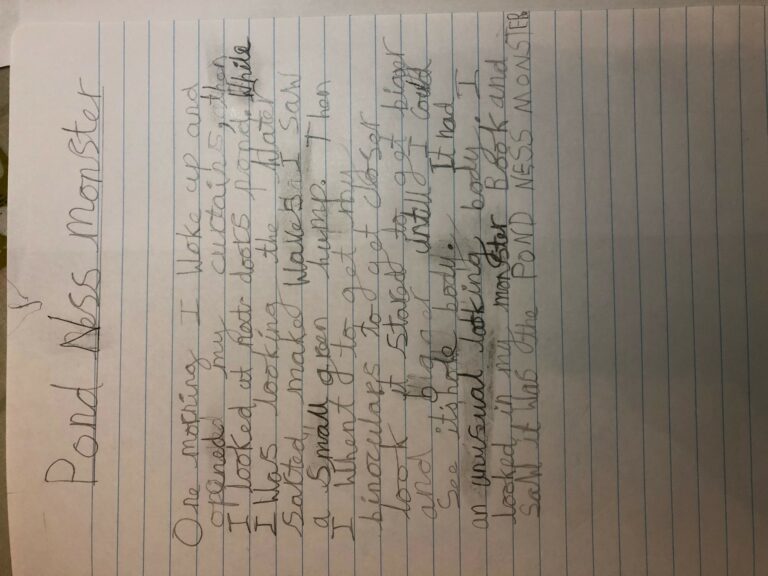 Pond Ness Monster
One morning I Woke up and
opened my curtains, then
I looked at next doors pond. While
I Was looking the Water
Sarted make Waves and I saw
a Small green hump. Then
I Whent to get my
binoculars to get closer
look it stared to get bigger
and bigger intill I could
See it's hole body. It had
an unusual looking body. I
looked in my monster Book and
SaW it Was the POND NESS MONSTER